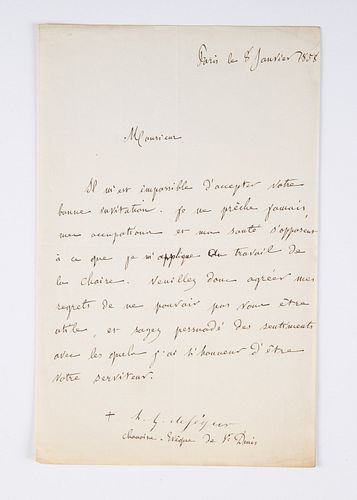 Paris le 8 Janvier 1858
Monsieur
Il m'est impossible d'accepter votre
bonne invitation. Je ne prêche jamais,
mes occupations et ma santé s'opposent
à ce que je m'applique au travail de
la chaire. Veuillez donc agréer mes
regrets de ne pouvoir pas vous être
utile, et soyez persuadé des sentiments
avec lesquels j'ai l'honneur d'être
votre serviteur.
+ L. G. de Ségur
Chanoine-Evêque de St Denis